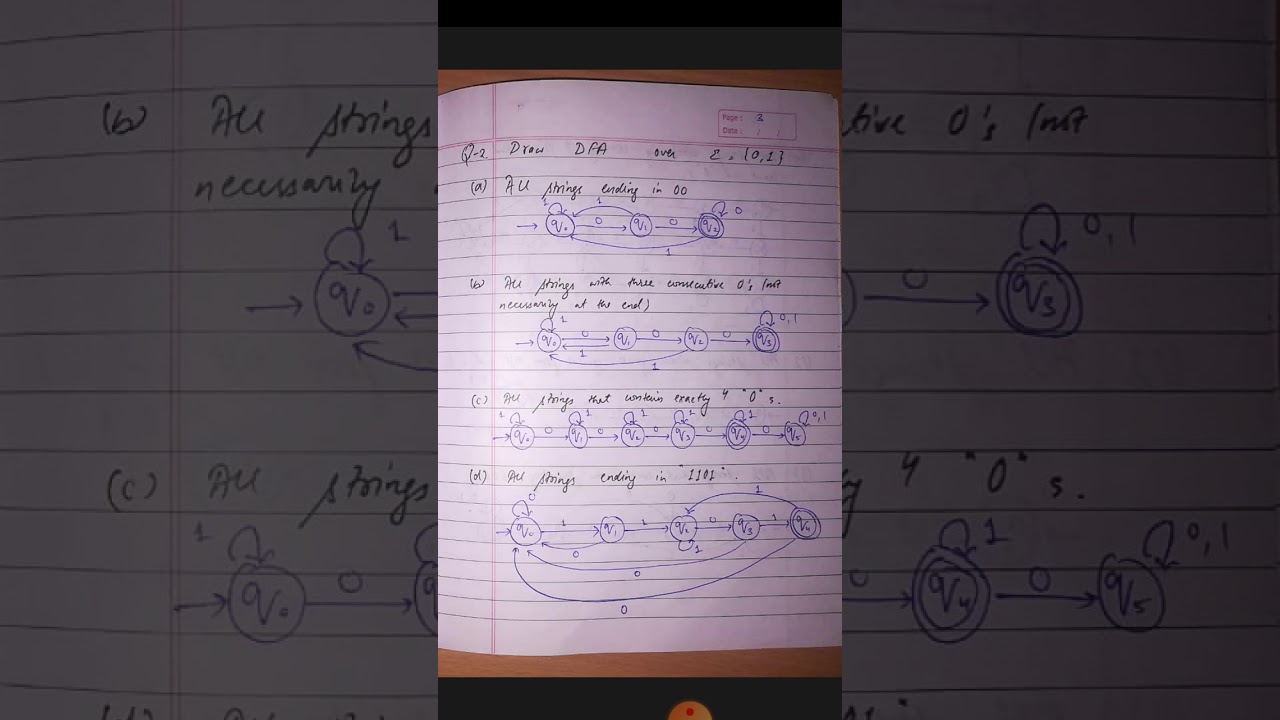 Page: 3
Date: / /
Q-2. Draw DFA over Σ = {0,1}
(a) All strings ending in 00
1 1 0
q0 0 q1 0 q2
1
(b) All strings with three consecutive 0's (not
necessarily at the end)
1 0,1
q0 0 q1 0 q2 0 q3
1
1
(c) All strings that contains exactly 4 "0" s.
1 1 1 1 1 0,1
q0 0 q1 0 q2 0 q3 0 q4 0 q5
(d) All strings ending in "1101".
0 1
q0 1 q1 1 q2 0 q3 1 q4
0 1
0
0